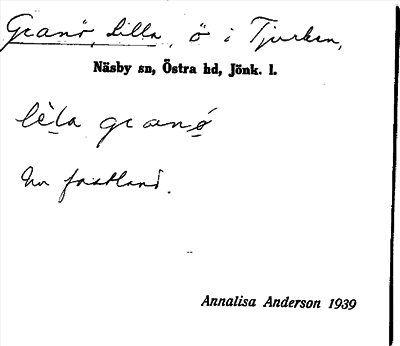 Granö, Lilla, ö i Tjurken,
Näsby sn, Östra hd, Jönk. l.
lèla granö
Nu fastland.
Annalisa Anderson 1939